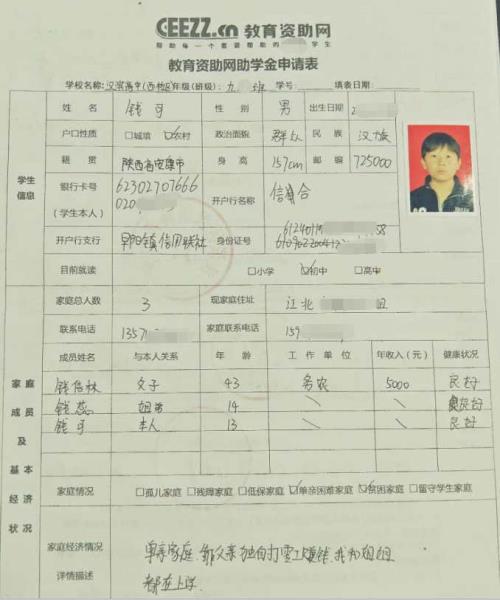 CEEZZ.cn 教育资助网
帮助每一个需要帮助的 学生
教育资助网助学金申请表
学校名称: 汉滨高中(西校区) 年级(班级): 九 班 学号: 填表日期:
学生信息
姓名 钱可 性别 男 出生日期 2
户口性质 □城镇 ☑农村 政治面貌 群众 民族 汉族
籍贯 陕西省安康市 身高 157cm 邮编 725000
银行卡号 (学生本人) 62302707666 020 开户行名称 信合
开户行支行 早阳镇信用联社 身份证号
目前就读 □小学 ☑初中 □高中
家庭成员及基本经济状况
家庭总人数 3 现家庭住址 江北 组
联系电话 1357 家庭联系电话 159
成员姓名 与本人关系 年龄 工作单位 年收入(元) 健康状况
钱 林 父子 43 务农 5000 良好
钱蕊 姐弟 14 \ \ 良好
钱可 本人 13 \ \ 良好
家庭情况 □孤儿家庭 □残障家庭 □低保家庭 ☑单亲困难家庭 ☑贫困家庭 □留守学生家庭
家庭经济情况详情描述
单亲家庭, 父亲独自打零工赚钱,我和姐姐
都在上学.